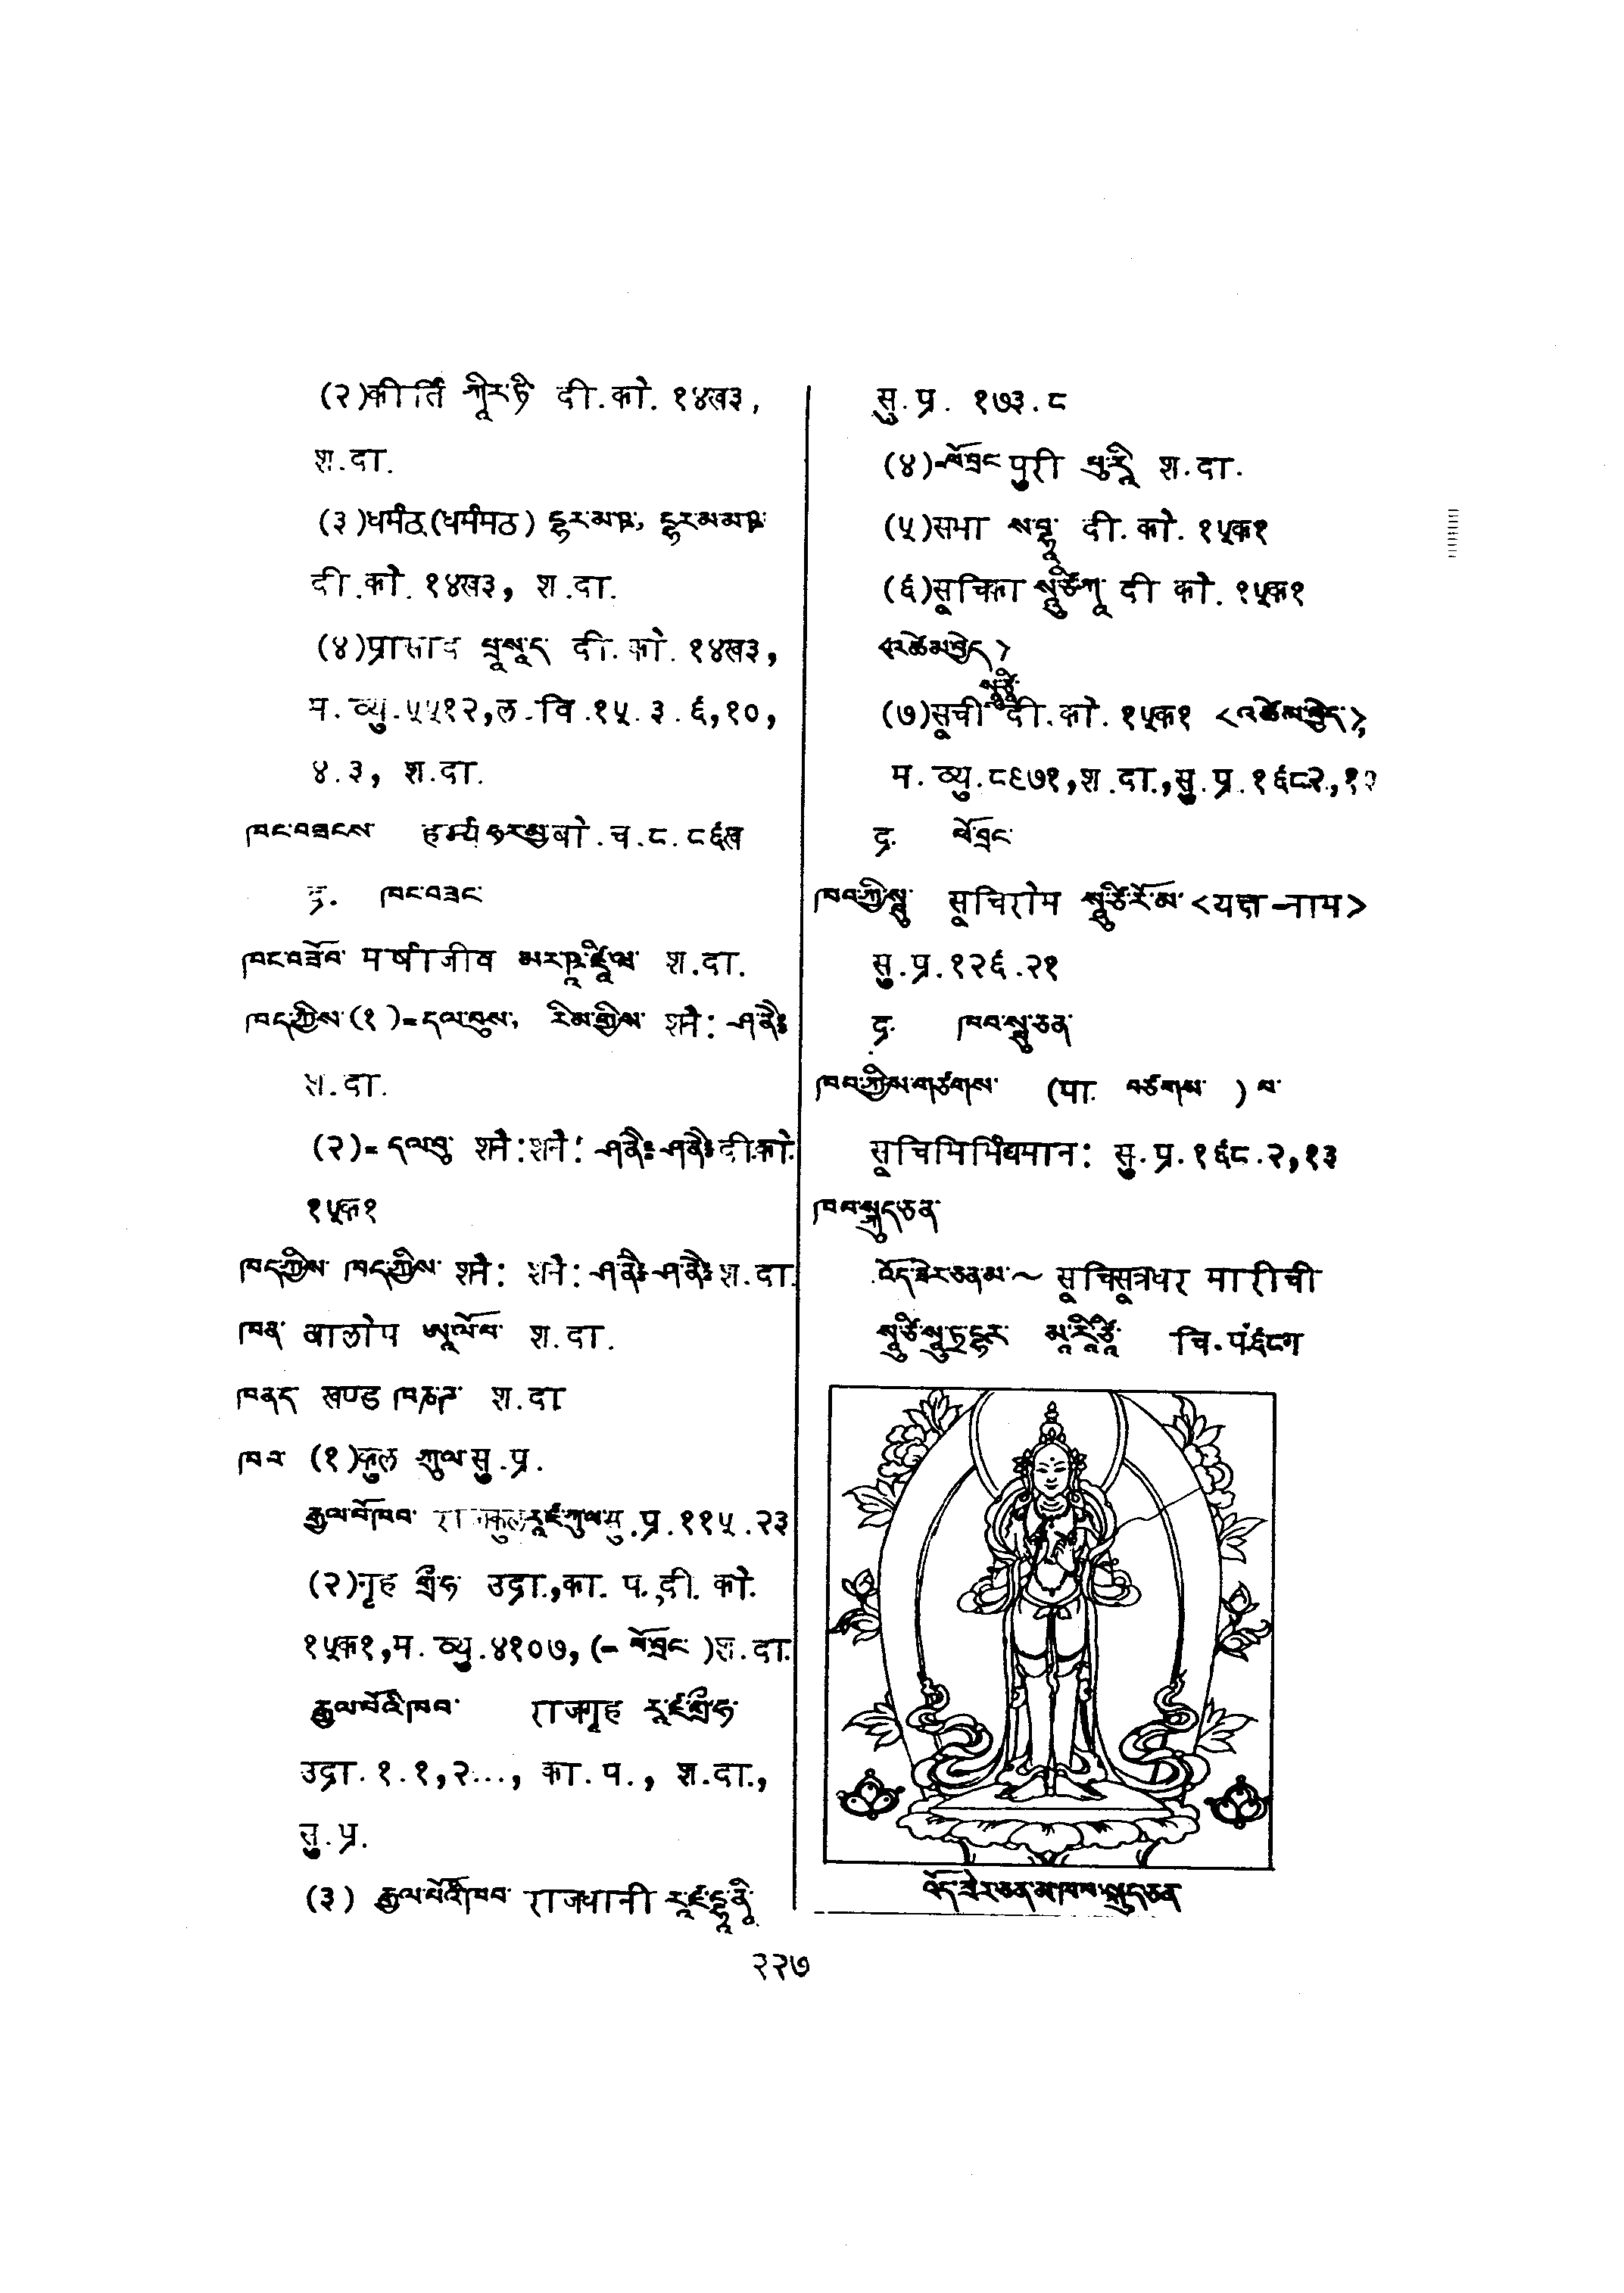 (२)कीर्ति ཀཱིརྟི दी.को. १४ख३,
श.दा.
(३)धर्मठ(धर्ममठ) दी.को. १४ख३, श.दा.
(४)प्रासाद པྲཱསཱད दी.को. १४ख३,
म.व्यु.५५१२,ल.वि.१५.३.६,१०,
४.३, श.दा.
ཁང་བཟངས་ हर्म्य बो.च.८.८६ख
द्र. ཁང་བཟང་
ཁང་བཟོབ་ मर्षाजीव श.दा.
ཁད་ཀྱིས་(१)=དལ་བུས་, རིམ་གྱིས་ शनैः ཤ་ནཻཿ
श.दा.
(२)=དལ་བུ शनैःशनैः ཤ་ནཻཿཤ་ནཻཿ दी.को.
१५क१
ཁད་ཀྱིས་ ཁད་ཀྱིས་ शनैः शनैः ཤ་ནཻཿཤ་ནཻཿ श.दा.
ཁན་ आलोप ཨཱ་ལོ་པ་ श.दा.
ཁནད खण्ड ཁཎྜ་ श.दा
ཁབ (१)कुल ཀུ་ལ सु.प्र.
རྒྱལ་པོ་ཁབ་ राजकुल རཱ་ཛ་ཀུ་ལ सु.प्र.११५.२३
(२)गृह གྲྀ་ཧ उद्रा.,का.प.,दी.को.
१५क१,म.व्यु.४१०७,(=ཕོ་བྲང་)श.दा.
རྒྱལ་པོའི་ཁབ་ राजगृह རཱ་ཛ་གྲྀ་ཧ་
उद्रा.१.१,२..., का.प., श.दा.,
सु.प्र.
(३) རྒྱལ་པོའི་ཁབ་ राजधानी རཱ་ཛ་དྷཱ་ནཱི
सु.प्र. १७३.८
(४)=ཕོ་བྲང पुरी པུ་རཱི श.दा.
(५)सभा ས་བྷཱ दी.को.१५क१
(६)सूचिका སཱུ་ཙི་ཀཱ दी को.१५क१
<འཚེམ་བྱེད>
(७)सूची སཱུ་ཙཱི दी.को.१५क१ <འཚེམ་བྱེད་>,
म.व्यु.८९७१,श.दा.,सु.प्र.१६८२,१३
द्र. ཕོ་བྲང་
ཁབ་ཀྱི་སྤུ सूचिरोम སཱུ་ཙི་རོ་མ་ <यक्ष-नाम>
सु.प्र.१२६.२१
द्र. ཁབ་སྤུ་ཅན་
ཁབ་ཀྱིས་གཙགས་ (पा. བཙགས་ ) པ་
सु.प्र.१६८.२,१३
ཁབ་སྲུད་ཅན་
འོད་ཟེར་ཅན་མ་~ सूचिसूत्रधर मारीची
སཱུ་ཙི་སཱུ་ཏྲ་དྷ་ར་ མཱ་རཱི་ཙཱི चि.पं६८ग
འོད་ཟེར་ཅན་མ་ཁབ་སྲུད་ཅན
२२७